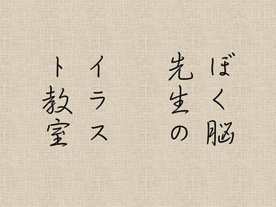 ぼく脳
先生の
イラス
ト教室